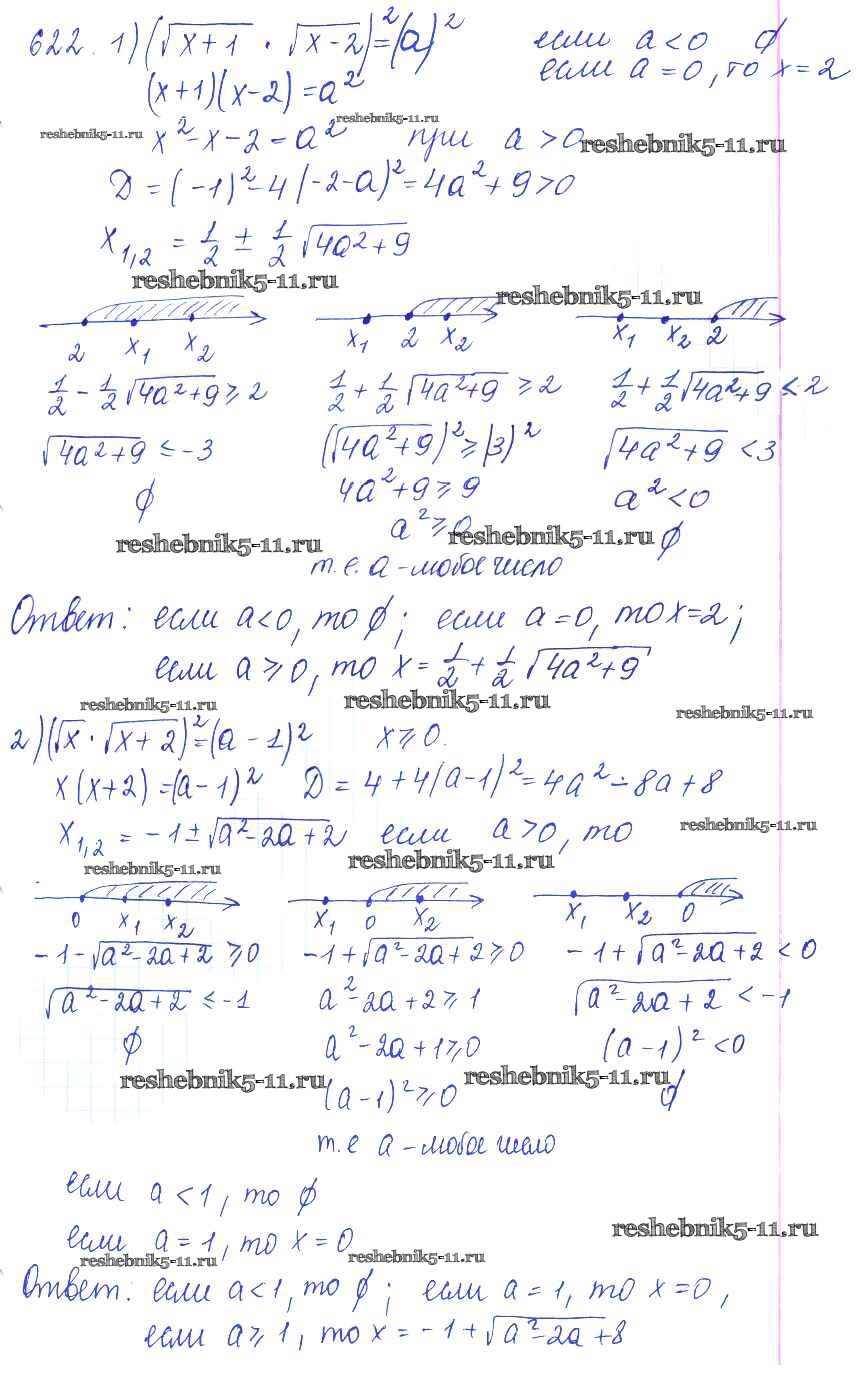 622. 1) (√x+1 · √x-2)² = (a)² если a < 0 ∅
(x+1)(x-2) = a² если a = 0, то x = 2
reshebnik5-11.ru
reshebnik5-11.ru x² - x - 2 = a² при a > 0 reshebnik5-11.ru
D = (-1)² - 4(-2-a)² = 4a² + 9 > 0
x₁,₂ = 1/2 ± 1/2 √4a²+9
reshebnik5-11.ru reshebnik5-11.ru
2 x₁ x₂ x₁ 2 x₂ x₁ x₂ 2
1/2 - 1/2 √4a²+9 ⩾ 2 1/2 + 1/2 √4a²+9 ⩾ 2 1/2 + 1/2 √4a²+9 < 2
√4a²+9 ≤ -3 (√4a²+9)² ⩾ (3)² √4a²+9 < 3
∅ 4a²+9 ⩾ 9 a² < 0
reshebnik5-11.ru a² ⩾ 0 reshebnik5-11.ru ∅
т.е. a - любое число
Ответ: если a<0, то ∅; если a=0, то x=2;
если a ⩾ 0, то x = 1/2 + 1/2 √4a²+9
reshebnik5-11.ru reshebnik5-11.ru reshebnik5-11.ru
2) (√x · √x+2)² = (a-1)² x ⩾ 0.
x(x+2) = (a-1)² D = 4+4(a-1)² = 4a² - 8a + 8
x₁,₂ = -1 ± √a²-2a+2 если a > 0, то reshebnik5-11.ru
reshebnik5-11.ru reshebnik5-11.ru
0 x₁ x₂ x₁ 0 x₂ x₁ x₂ 0
-1 - √a²-2a+2 ⩾ 0 -1 + √a²-2a+2 ⩾ 0 -1 + √a²-2a+2 < 0
√a²-2a+2 ≤ -1 a²-2a+2 ⩾ 1 √a²-2a+2 < -1
∅ a²-2a+1 ⩾ 0 (a-1)² < 0
reshebnik5-11.ru (a-1)² ⩾ 0 reshebnik5-11.ru ∅
т.е a - любое число
если a < 1, то ∅
если a = 1, то x = 0 reshebnik5-11.ru
reshebnik5-11.ru reshebnik5-11.ru
Ответ: если a<1, то ∅; если a = 1, то x = 0,
если a ⩾ 1, то x = -1 + √a²-2a+8